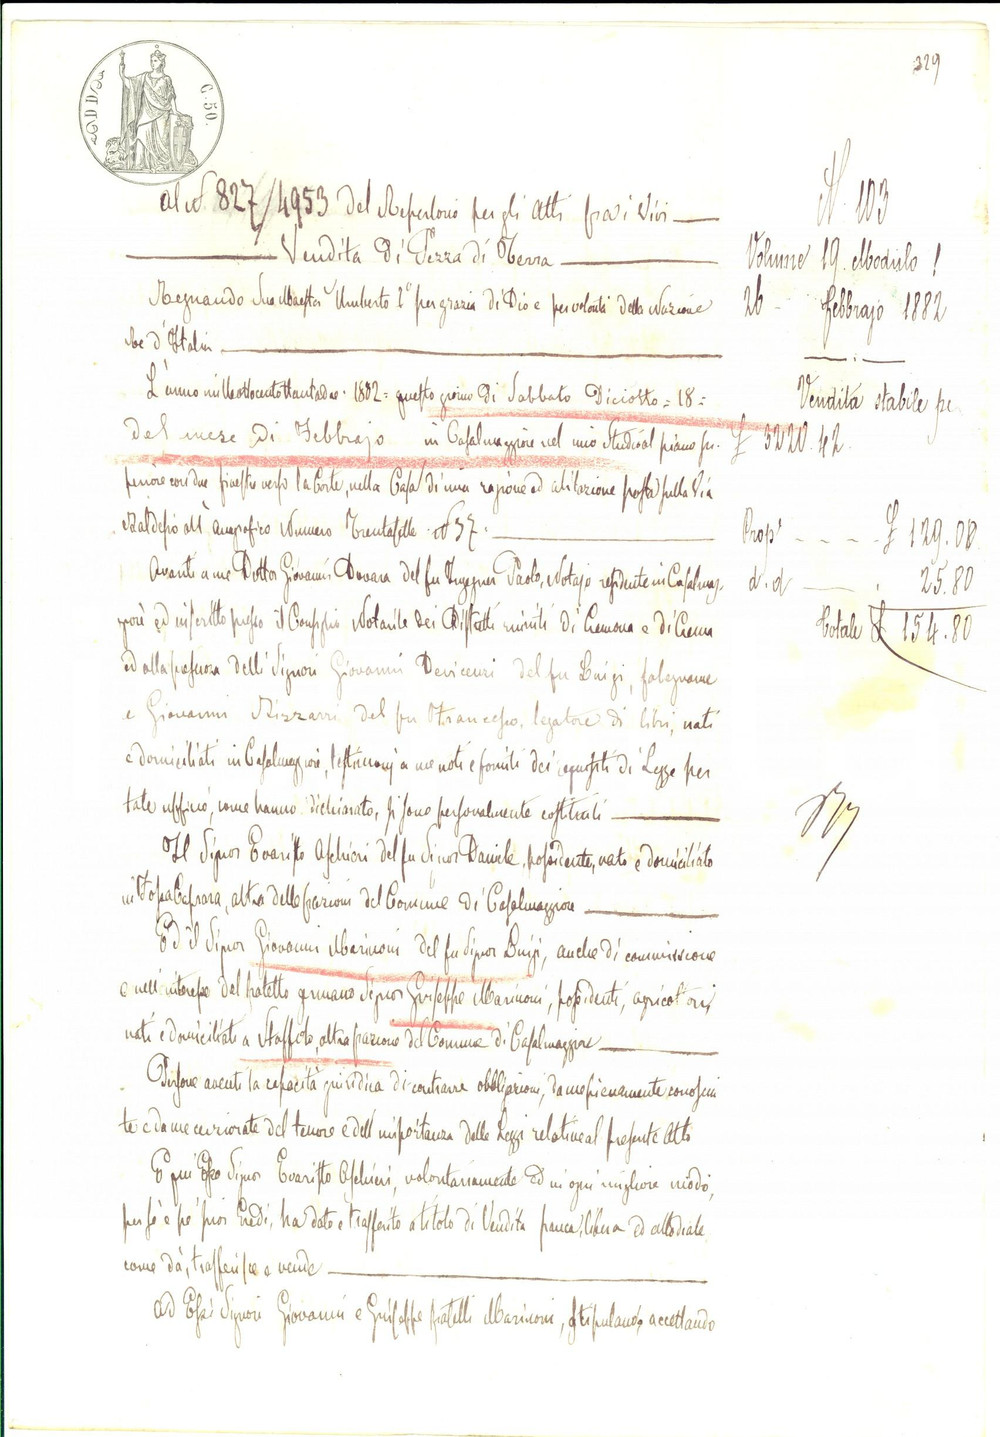 329
C. 50.
Al N. 827/4953 del Repertorio per gli Atti fra i Vivi
Vendita di Pezza di Terra
Regnando Sua Maestà Umberto 1° per grazia di Dio e per volontà della Nazione
Re d'Italia
L'anno milleottocentottantadue = 1882 = questo giorno di Sabbato Diciotto = 18 =
del mese di Febbrajo in Casalmaggiore nel mio Studio al piano su-
periore con due finestre verso la Corte, nella Casa di mia ragione ed abitazione posta sulla Via
Baldesio all'anagrafico Numero Trentasette N 37.
Avanti a me Dottor Giovanni Dovara del fu Ingegner Paolo, Notajo residente in Casalmag-
giore ed inscritto presso il Consiglio Notarile dei Distretti riuniti di Cremona e di Crema
ed alla presenza delli Signori Giovanni Devicenzi del fu Luigi, falegname
e Giovanni Rizzarri del fu Francesco, legatore di libri, nati
e domiciliati in Casalmaggiore, testimonj a me noti e forniti dei requisiti di Legge per
tale ufficio, come hanno dichiarato, si sono personalmente costituiti
Il Signor Evaristo Aschieri del fu Signor Daniele, possidente, nato e domiciliato
in Fossa Caprara, altra delle frazioni del Comune di Casalmaggiore
Ed il Signor Giovanni Marinoni del fu Signor Luigi, anche di commissione
e nell'interesse del fratello germano Signor Giuseppe Marinoni, possidenti, agricoltori
nati e domiciliati a Staffolo, altra frazione del Comune di Casalmaggiore
Persone aventi la capacità giuridica di contrarre obbligazioni, da me pienamente conosciu
te e da me cerziorate del tenore e dell'importanza delle Leggi relative al presente Atto
E qui Esso Signor Evaristo Aschieri, volontariamente ed in ogni migliore modo,
per sé e pe' suoi Eredi, ha dato e trasferito a titolo di Vendita franca, libera ed allodiale,
come dà, trasferisce e vende
ad Essi Signori Giovanni e Giuseppe fratelli Marinoni, stipulanti, accettando
N. 103
Volume 19. Modulo 1
26 Febbrajo 1882
Vendita stabile pe
£ 3220.42.
Prop' £ 129.00
d. d 25.80
Totale £ 154.80